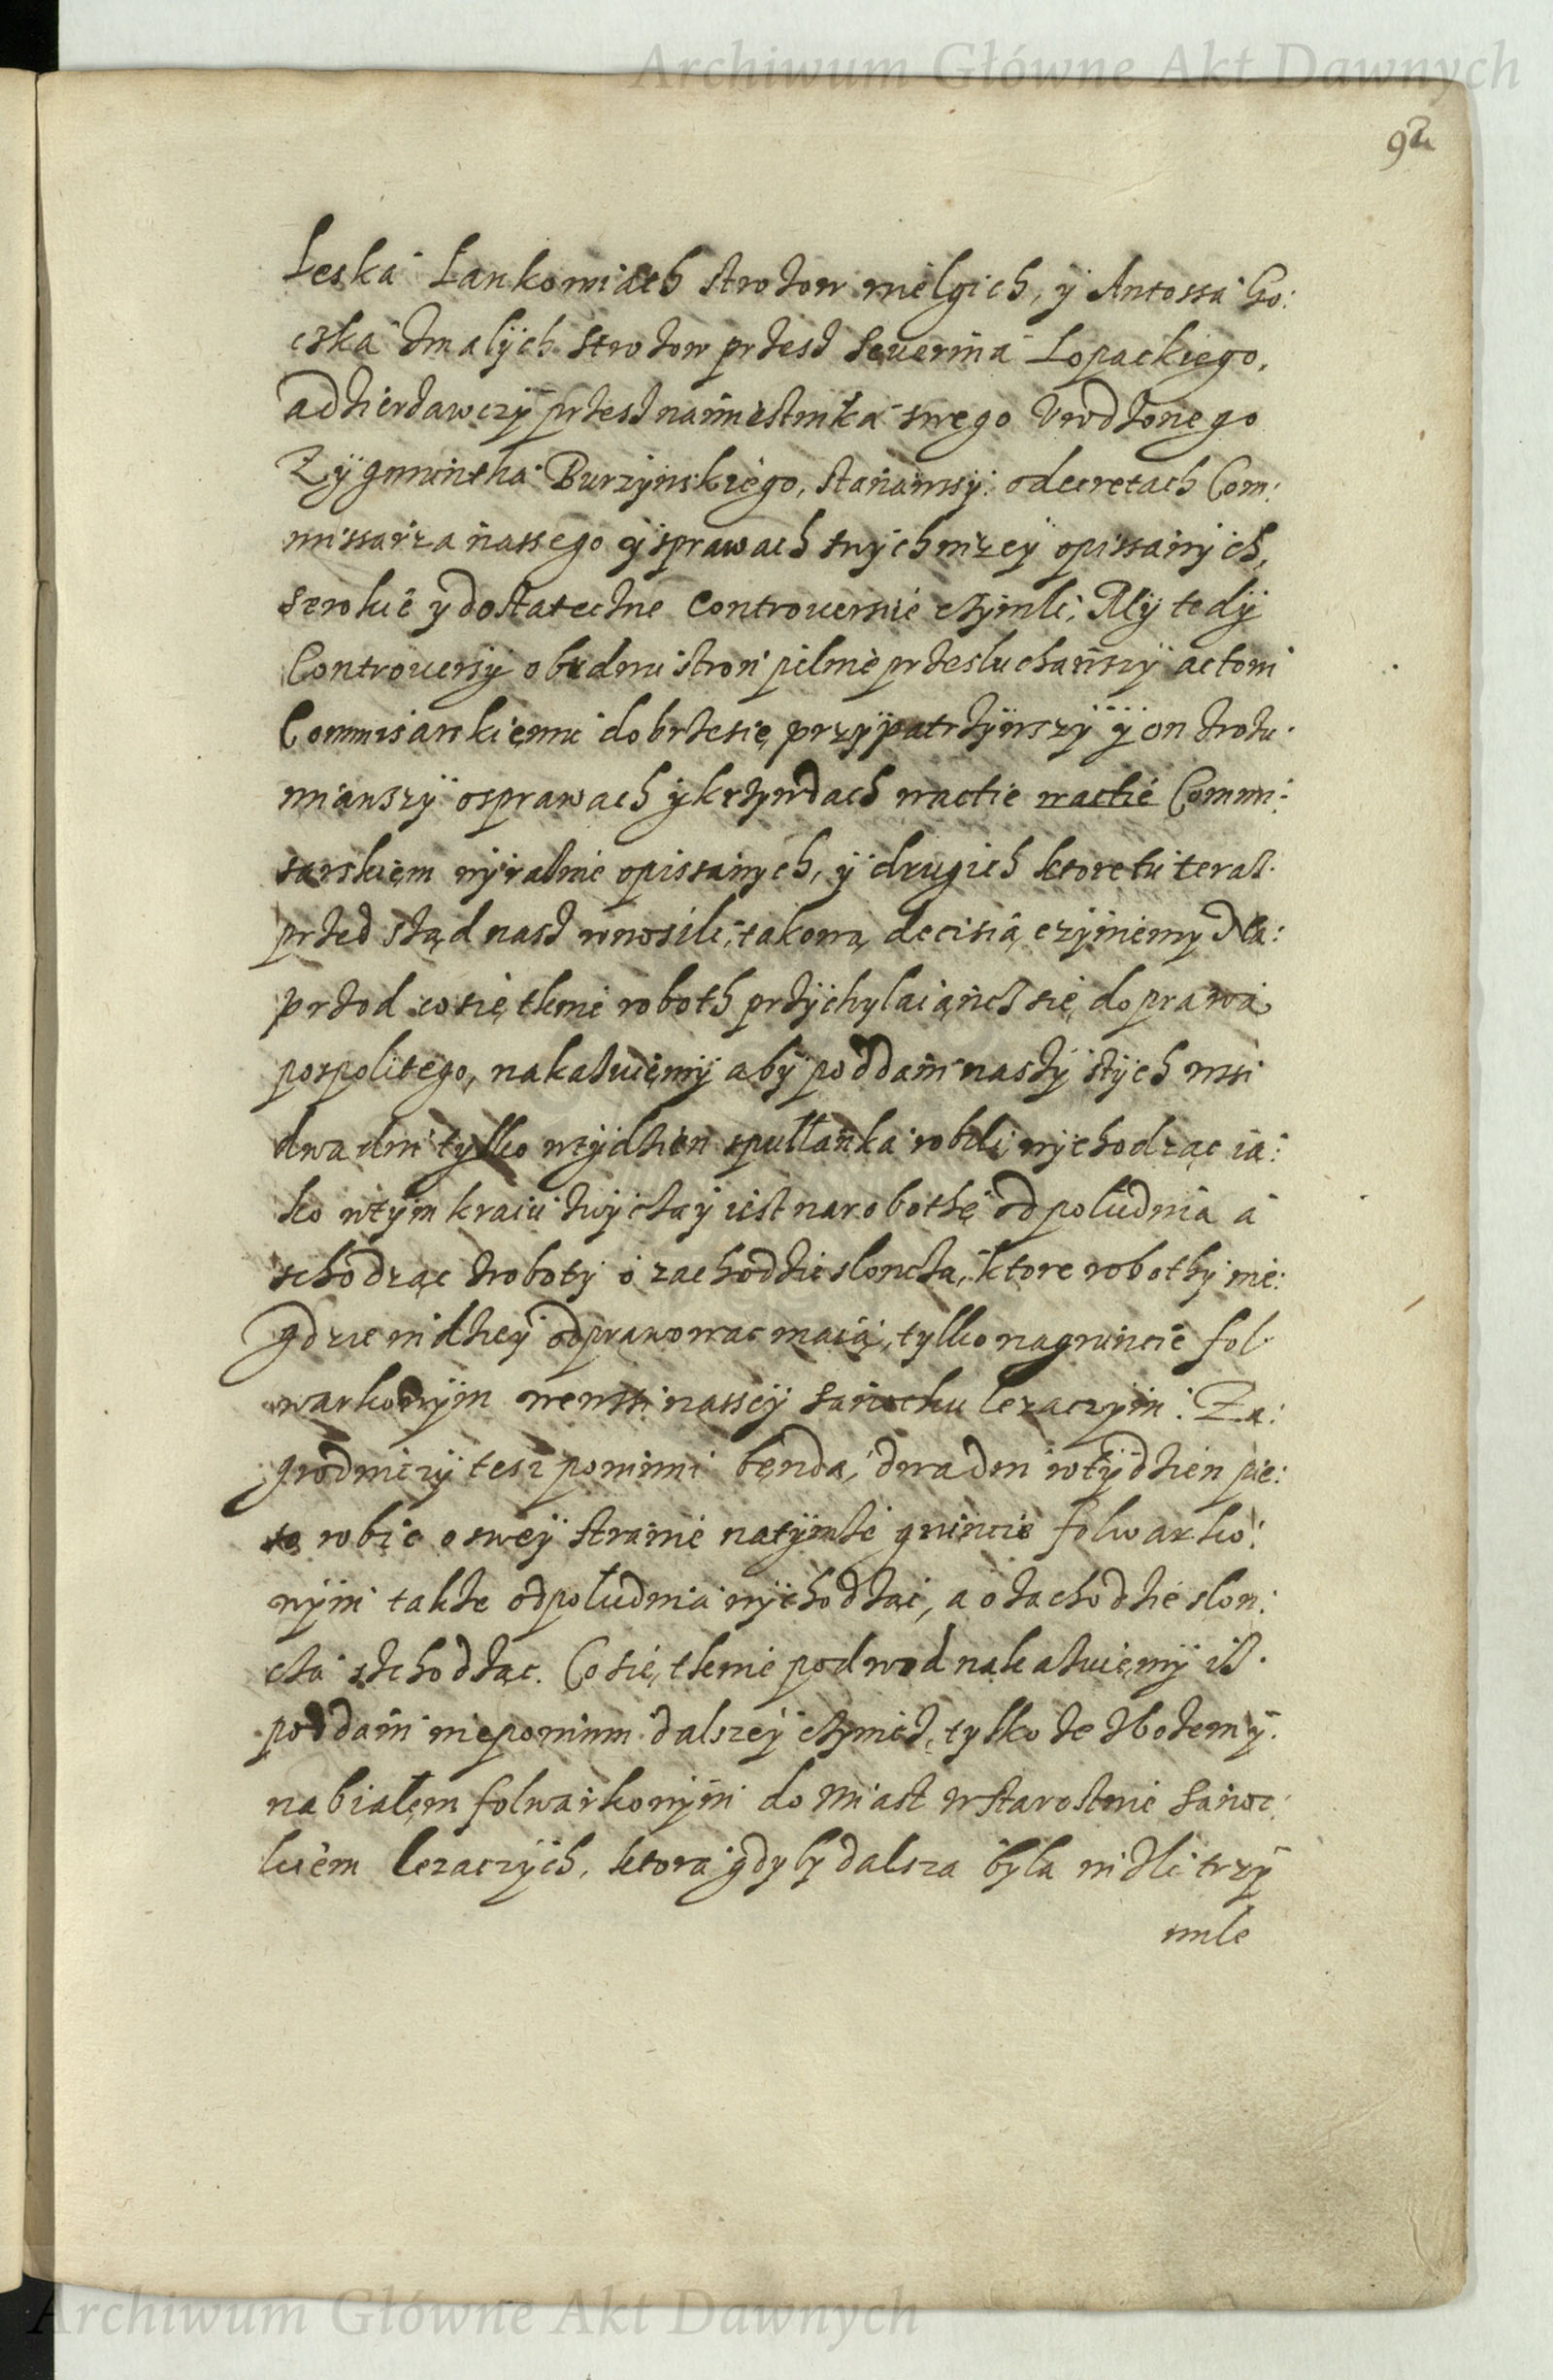 Archiwum Główne Akt Dawnych
92
Leska Lankowiath Strozow wielgich, y Antossa Ho:
czka zmalych Strozow przesz Seuerina Lopackiego,
adzierzawczy przesz namiestnika swego Vrodzonego
Zygmuntha Burzynskiego, stanawsy: o decretach Com:
missarza nassego y sprawach swych nizey opissanych,
szerokie y dostateczne Controuersie czynili; My tedy
Controuersy obudwu stron pilnie przesluchawszy actowi
Commisarskiemu dobrze się przypatrzywszy y on zrozu:
miawszy o sprawach y krzywdach wactie wactie Commi:
sarskiem wyraznie opissanych, y drugich ktore tu teraz
przed sąd nasz wnosili, takową decisią czyniemy Na:
przod co się tknie roboth przychylaiąncz się do prawa
pospolitego, nakazuiemy aby poddani naszy stych wsi
dwa dni tylko wtydzien spułlanka robili, wychodząc ia:
ko wtym kraiu zwyczay iest na robothę od poludnia a
schodząc zroboty o zachodzie sloncza, ktore robothy nie:
gdzie indziey odprawowac maią, tylko na gruncie fol
warkowym wewsi nassey Sanoczku lezaczym: Za:
grodniczy tesz powinni bęnda, dwa dni wtydzien pie:
so robic o swey strawie natymze gruncie folwarko:
wym takze od poludnia wychodząc, a o zachodzie slon:
cza zchodząc. Co się tknie podwod nakazuiemy isz
poddani niepowinni dalszey czynicz, tylko ze zbozem y
nabialem folwarkowym do miast w starostwie Sanoc:
kiem lezaczych, ktora gdyby dalsza byla nizli trzy
mile
Archiwum Główne Akt Dawnych